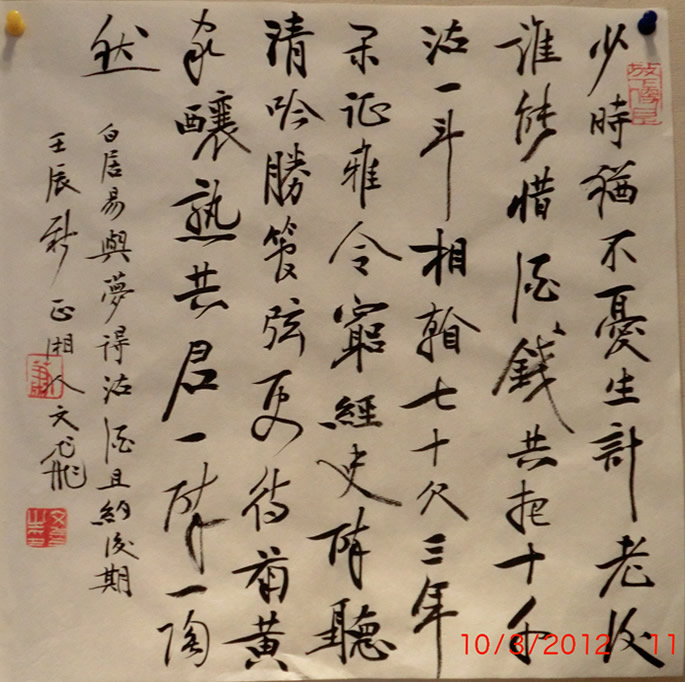 少時猶不憂生計老後
誰能惜酒錢共把十千
沽一斗相翰七十欠三年
閑证雅令窮經史醉聽
清吟勝管弦更待菊黃
家釀熟共君一醉一陶
然
白居易與夢得沽酒且約後期
壬辰秋 湘人文飛
10/3/2012 11